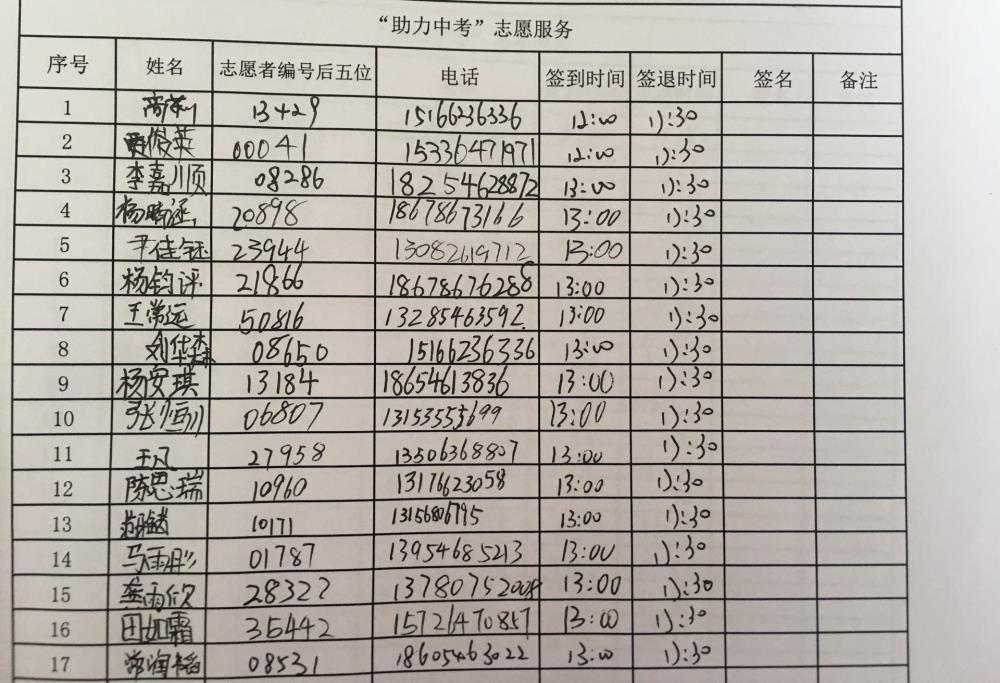 “助力中考”志愿服务
序号 姓名 志愿者编号后五位 电话 签到时间 签退时间 签名 备注
1 13429 15166236336 12:00 17:30
2 俊英 00041 15336471971 12:00 17:30
3 李嘉顺 08286 18254628872 13:00 17:30
4 杨晴涵 20898 18678673166 13:00 17:30
5 尹佳钰 23944 13082619712 13:00 17:30
6 杨钧评 21866 18678676288 13:00 17:30
7 王常远 50816 13285463592 13:00 17:30
8 刘华森 08650 15166236336 13:00 17:30
9 杨安琪 13184 18654613836 13:00 17:30
10 张恒训 06807 13153555699 13:00 17:30
11 王凡 27958 13506368807 13:00 17:30
12 陈思瑞 10960 13176623058 13:00 17:30
13 10171 13156806795 13:00 17:30
14 马雨彤 01787 13954685213 13:00 17:30
15 龚雨欣 28327 13780752008 13:00 17:30
16 田如霜 35442 15726470857 13:00 17:30
17 常润韬 08531 18605463022 13:00 17:30